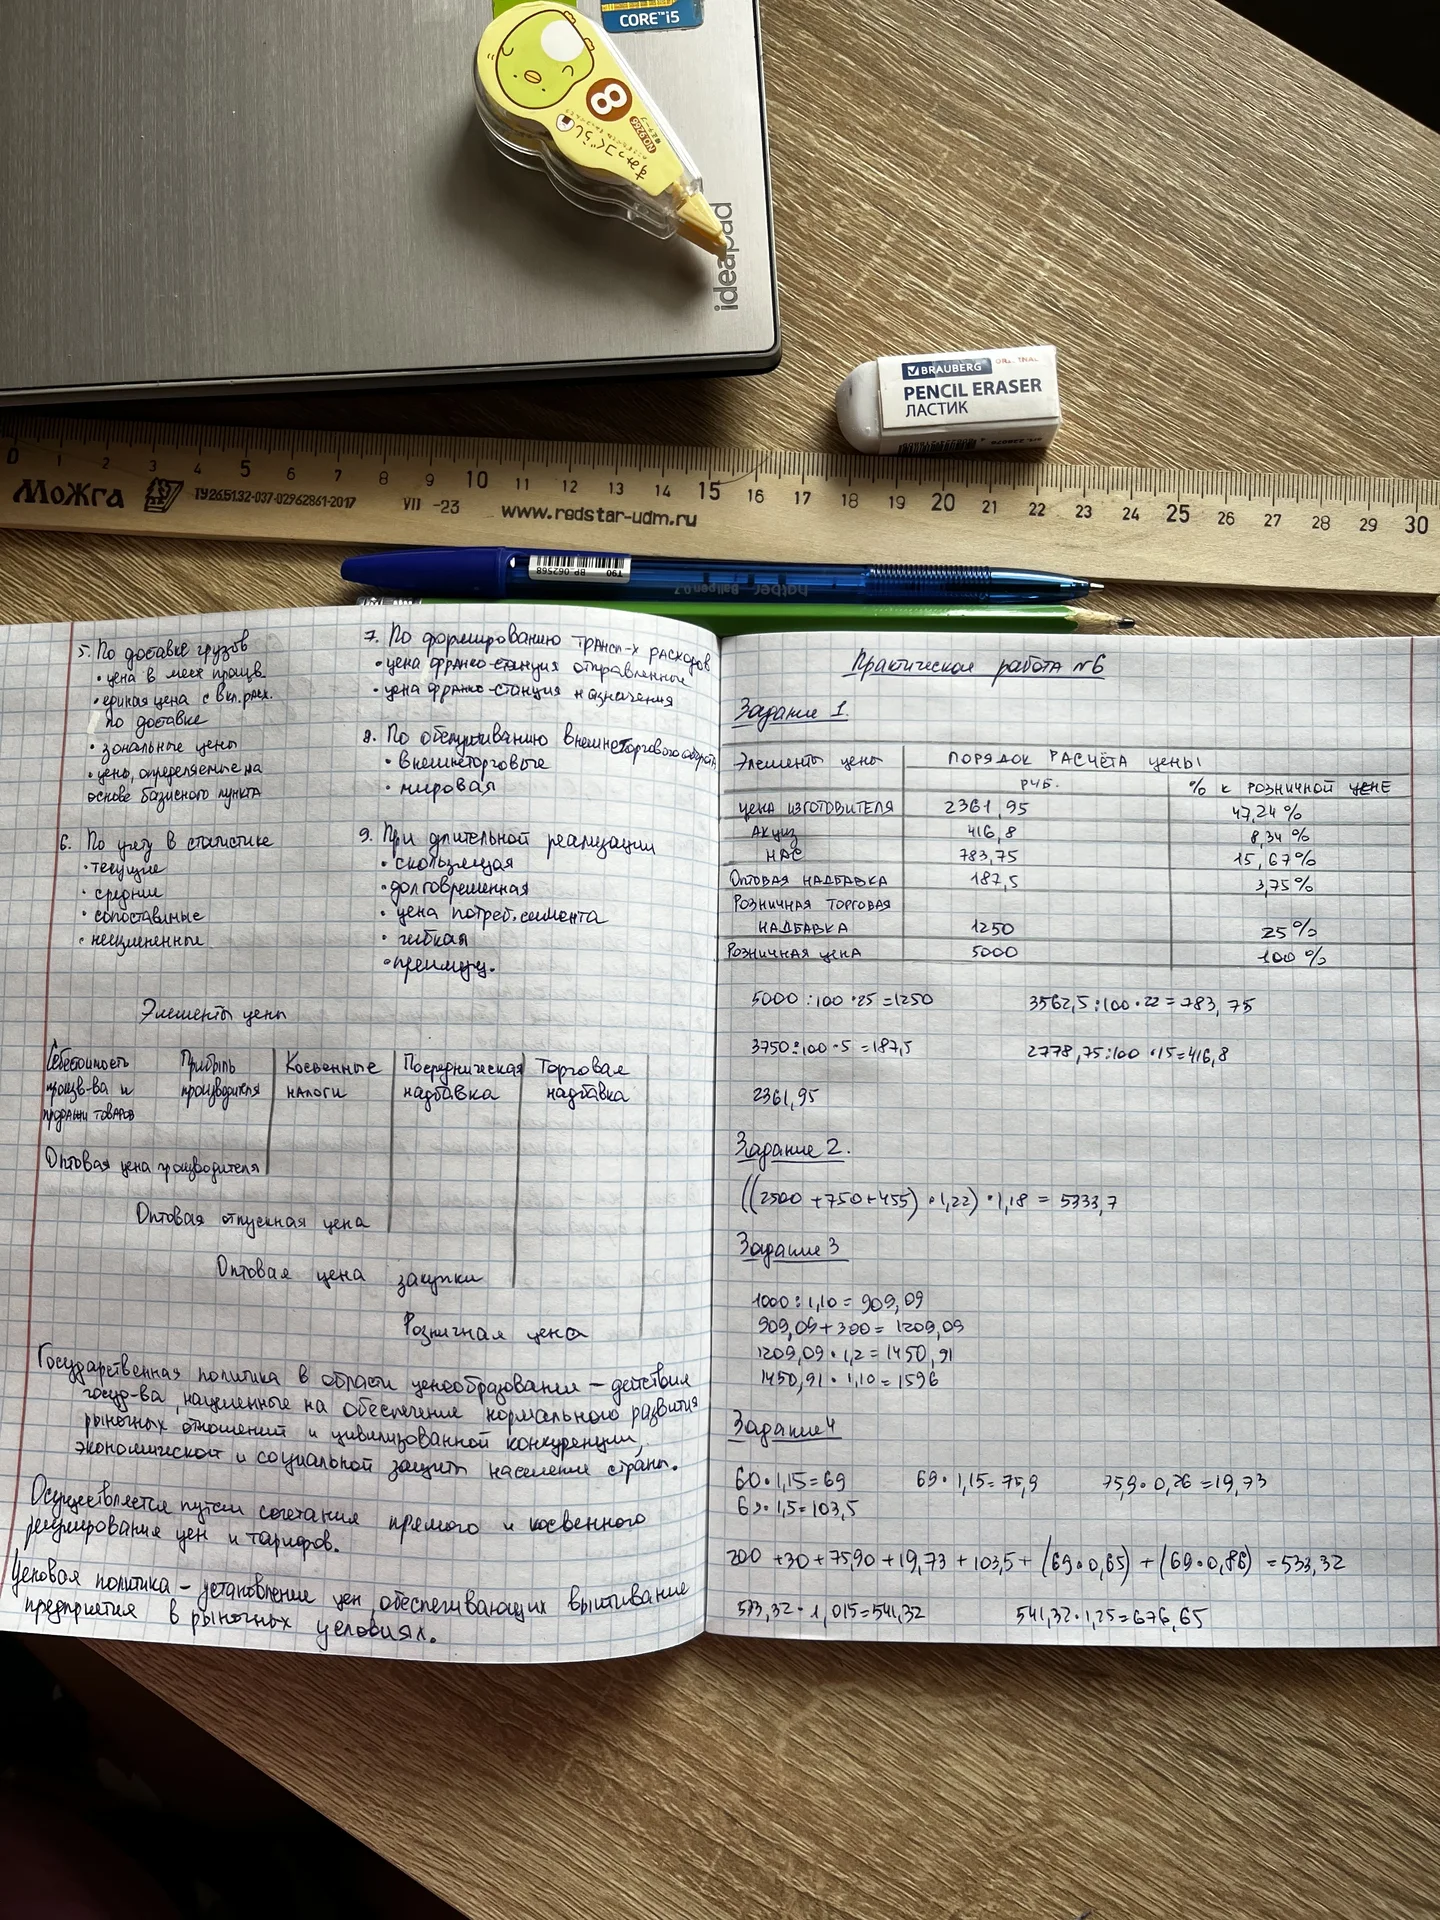 CORE i5
8
NO.9266
すみっコぐらし
ideapad
BRAUBERG
PENCIL ERASER
ЛАСТИК
0 1 2 3 4 5 6 7 8 9 10 11 12 13 14 15 16 17 18 19 20 21 22 23 24 25 26 27 28 29 30
МоЖга ТУ 26.51.32-037-02962861-2017 VII -23 www.redstar-udm.ru
T90
BP_062568
hatber Ball pen 0.7
5. По доставке грузов
• цена в месте произв.
• единая цена с вкл. расх.
по доставке
• зональные цены
• цены, определяемые на
основе базисного пункта
6. По учету в статистике
• текущие
• средние
• сопоставимые
• неизменные
7. По формированию трансп-х расходов
• цена франко-станция отправление
• цена франко-станция назначения
8. По обслуживанию внешнеторгового оборота
• внешнеторговые
• мировая
9. При длительной реализации
• скользящая
• долговременная
• цена потреб. сегмента
• гибкая
• преимущ.
Элементы цены
Себестоимость произв-ва и продажи товаров
Прибыль производителя
Косвенные налоги
Посредническая надбавка
Торговая надбавка
Оптовая цена производителя
Оптовая отпускная цена
Оптовая цена закупки
Розничная цена
Государственная политика в области ценообразования – действия
госуд-ва, нацеленные на обеспечение нормального развития
рыночных отношений и цивилизованной конкуренции,
экономической и социальной защиты населения страны.
Осуществляется путем сочетания прямого и косвенного
регулирования цен и тарифов.
Ценовая политика – установление цен, обеспечивающих выживание
предприятия в рыночных условиях.
Практическая работа №6
Задание 1.
Элементы цены ПОРЯДОК РАСЧЁТА ЦЕНЫ
РУБ. % К РОЗНИЧНОЙ ЦЕНЕ
ЦЕНА ИЗГОТОВИТЕЛЯ 2361,95 47,24 %
АКЦИЗ 416,8 8,34 %
НДС 783,75 15,67%
ОПТОВАЯ НАДБАВКА 187,5 3,75%
РОЗНИЧНАЯ ТОРГОВАЯ
НАДБАВКА 1250 25%
РОЗНИЧНАЯ ЦЕНА 5000 100 %
5000 : 100 · 25 = 1250 3562,5 : 100 · 22 = 783,75
3750 : 100 · 5 = 187,5 2778,75 : 100 · 15 = 416,8
2361,95
Задание 2.
((2500 + 750 + 455) · 1,22) · 1,18 = 5333,7
Задание 3
1000 : 1,10 = 909,09
909,09 + 300 = 1209,09
1209,09 · 1,2 = 1450,91
1450,91 · 1,10 = 1596
Задание 4
60 · 1,15 = 69 69 · 1,15 = 75,9 75,9 · 0,26 = 19,73
69 · 1,5 = 103,5
200 + 30 + 75,90 + 19,73 + 103,5 + (69 · 0,65) + (69 · 0,86) = 533,32
533,32 · 1,015 = 541,32 541,32 · 1,25 = 676,65